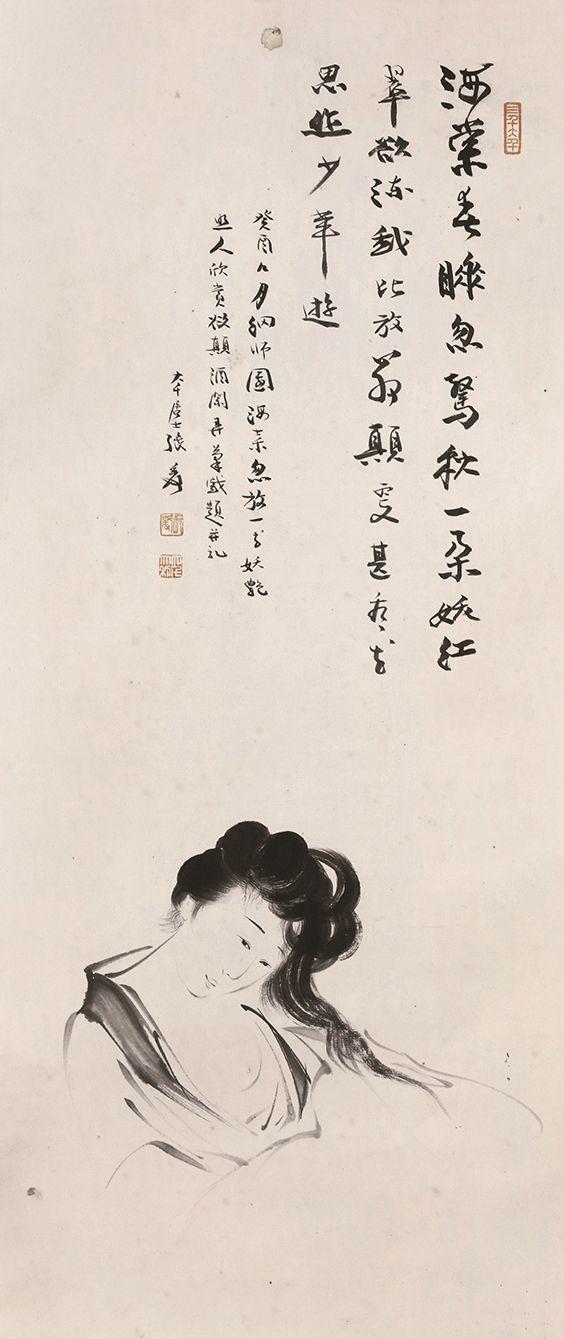 海棠春睡忽驚秋一朵妖紅
翠欲流我比放翁顛更甚看花
思作少年遊
癸酉八月網師園海棠忽放一朵妖艷
照人欣賞欲顛酒闌弄筆戲題并記
大千居士張爰